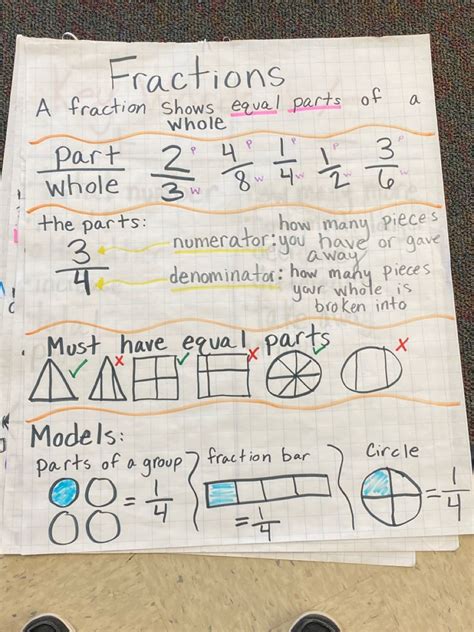 Fractions
A fraction shows equal parts of a
whole
part
whole
2 p
3 w
4 p
8 w
1 p
4 w
1 p
2 w
3 p
6 w
the parts:
3
4
numerator: how many pieces
you have or gave
away
denominator: how many pieces
your whole is
broken into
Must have equal parts
✓ x ✓ x ✓ x
Models:
parts of a group
= 1
4
fraction bar
= 1
4
Circle
= 1
4